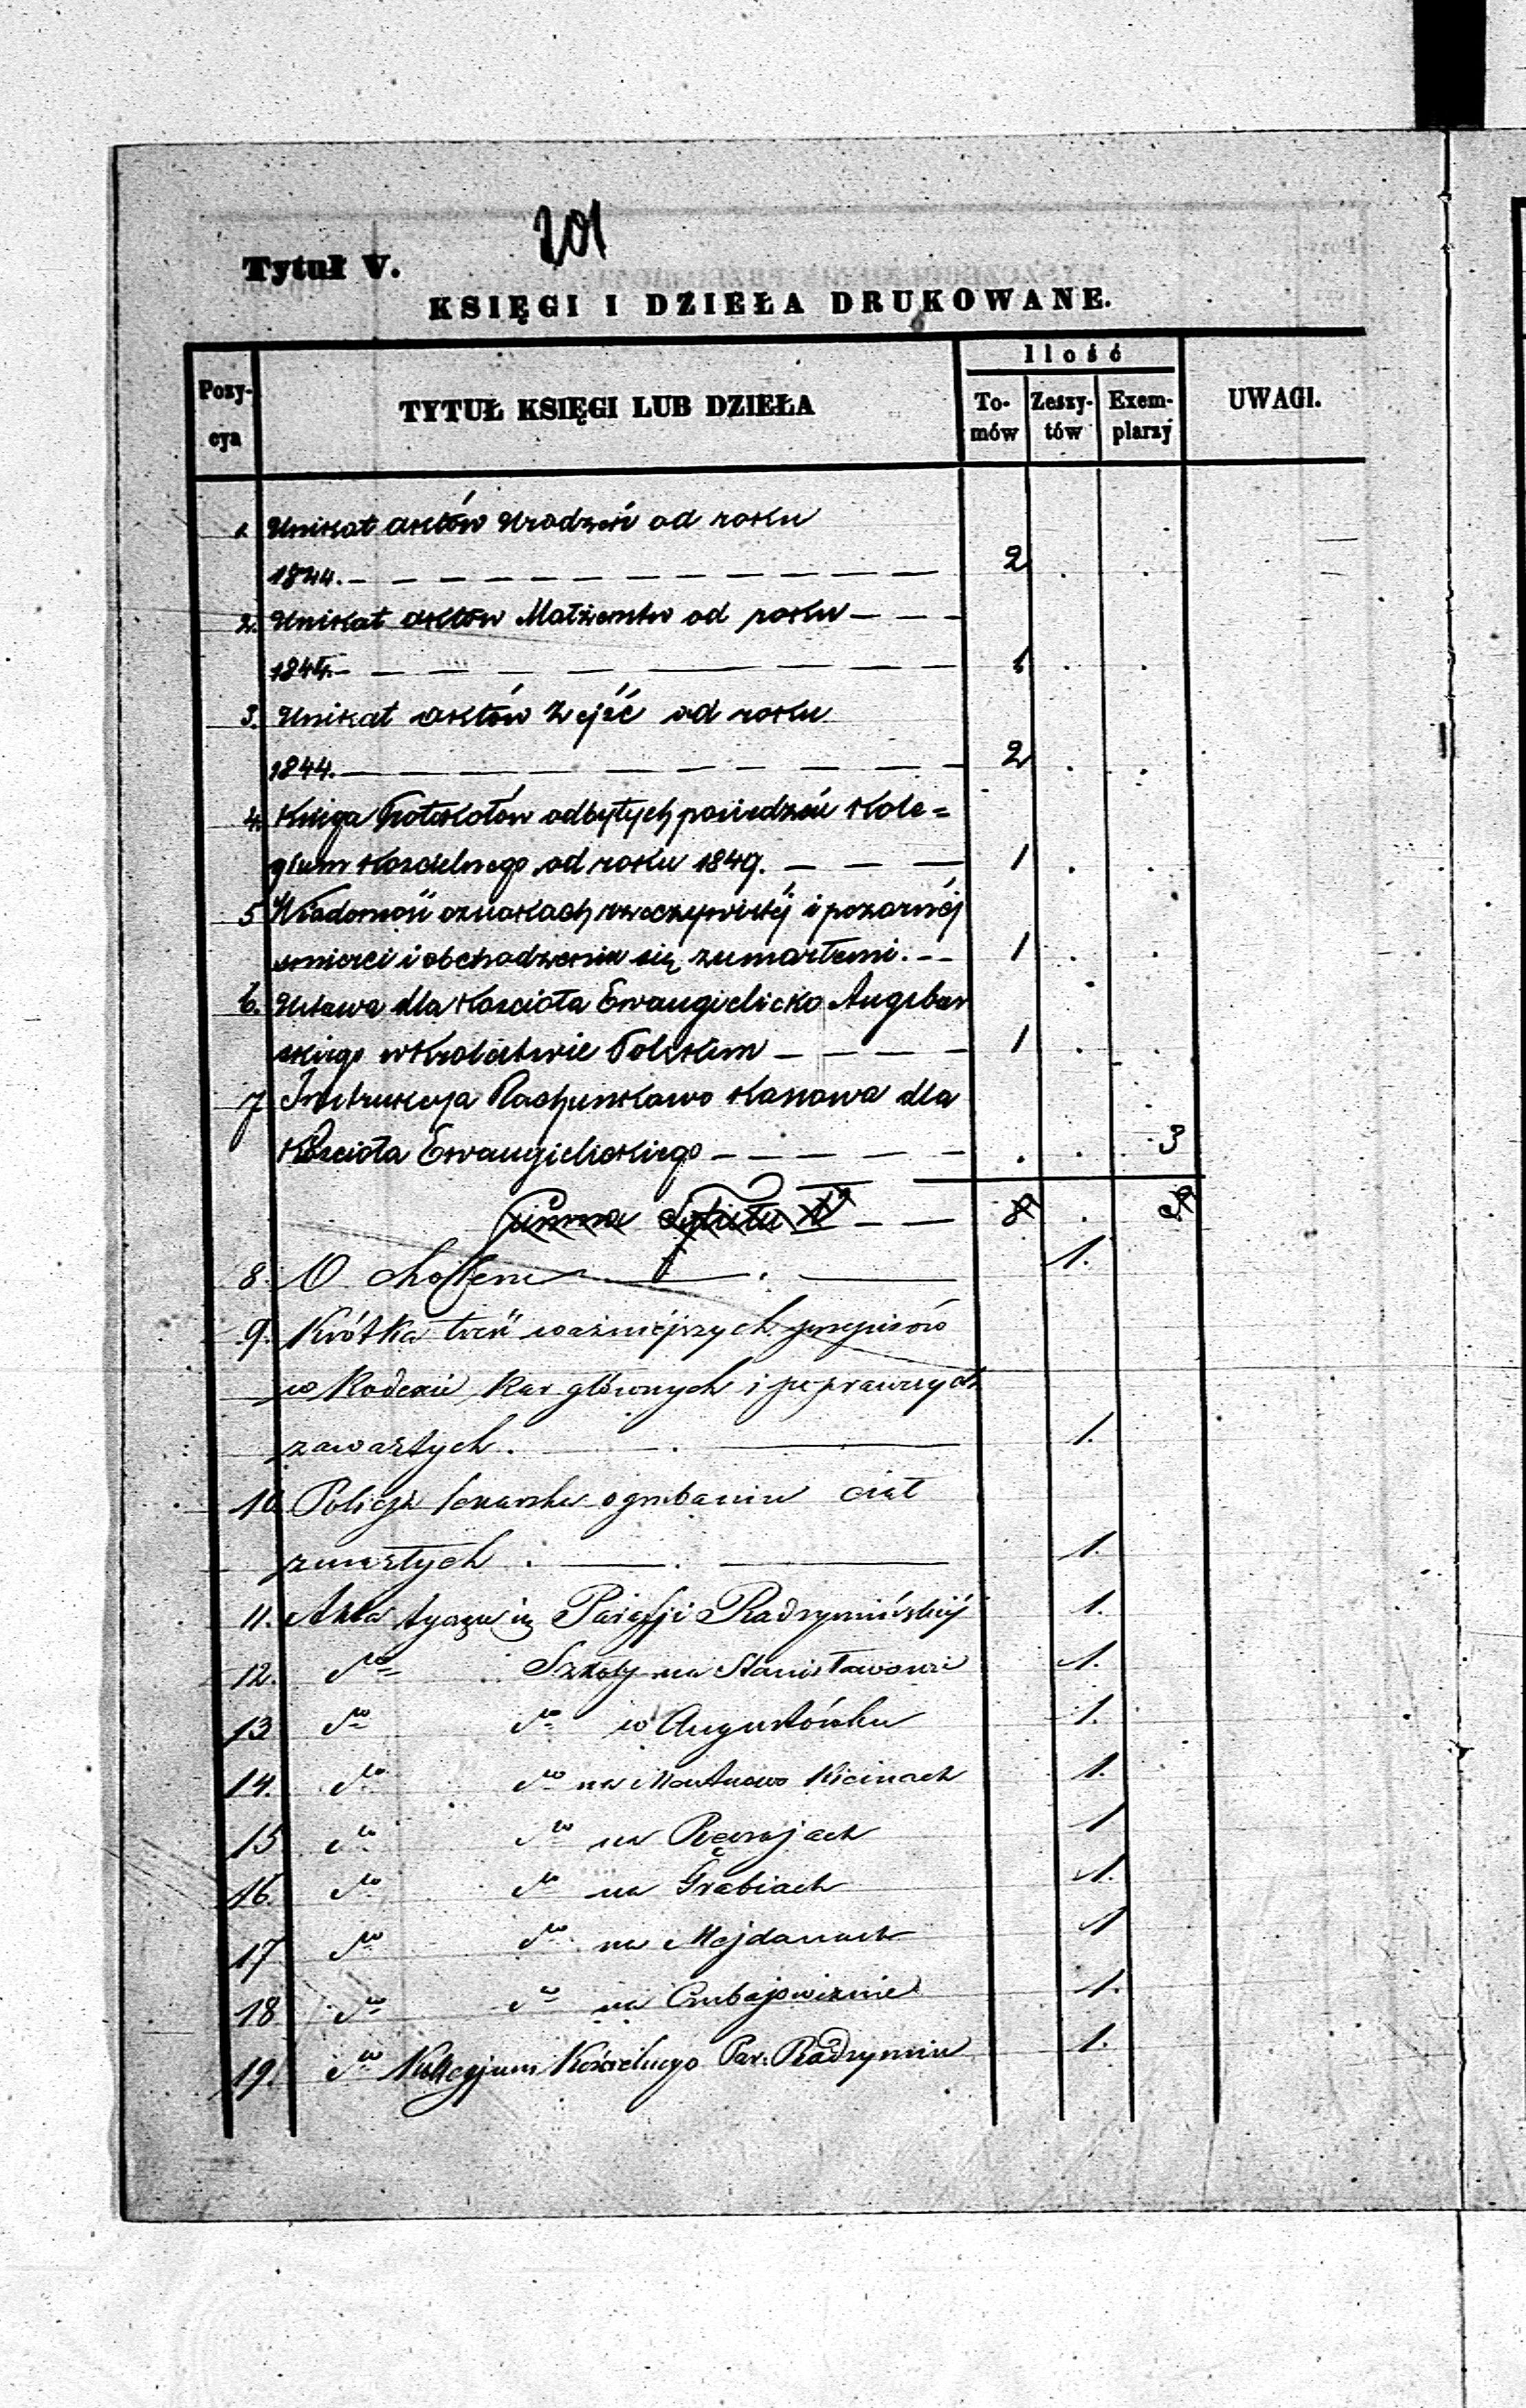 201
Tytuł V.
KSIĘGI I DZIEŁA DRUKOWANE.
Pozy-
cya
TYTUŁ KSIĘGI LUB DZIEŁA
Ilość
To-
mów
Zeszy-
tów
Exem-
plarzy
UWAGI.
1. Unikat aktów Urodzeń od roku
1844. — 2 . .
2. Unikat aktów Małżenstw od roku —
1844. — 1 . .
3. Unikat aktów Zejść od roku
1844. — 2 . .
4. Księga Protokołów odbytych posiedzeń Kole=
gium Koscielnego od roku 1849. — 1 . .
5 Wiadomość oznakach rzeczywistéj i pozornéj
smierci i obchodzenia się zumarłemi. — 1 . .
6. Ustawa dla Kosciola Ewangielicko Augsbur
skiego w Krolestwie Polskim — 1 . .
7 Instrukcya Rachunkowo Kassowa dla
Kosciola Ewangielickiego — . . 3
Summa Tytułu V — 8 . 3
8. O — 1.
9. Krótka treść ważniejszych przepisów
w Kodexie Kar głównych i poprawczych
zawartych. — 1.
10 Policja lekarska o grzebaniu ciał
zmarłych . — 1.
11. Akta tyczące się Parafji Radzymińskiéj 1.
12. dto Szkoły na Stanisławowie 1.
13 dto dto w Augustówku 1.
14. dto dto na Kicinach 1.
15 dto dto na 1
16. dto dto na Grabiach 1.
17 dto dto na Majdanach 1
18 dto dto na 1.
19. dto Kollegjum Kościelnego Par. Radzymin 1.